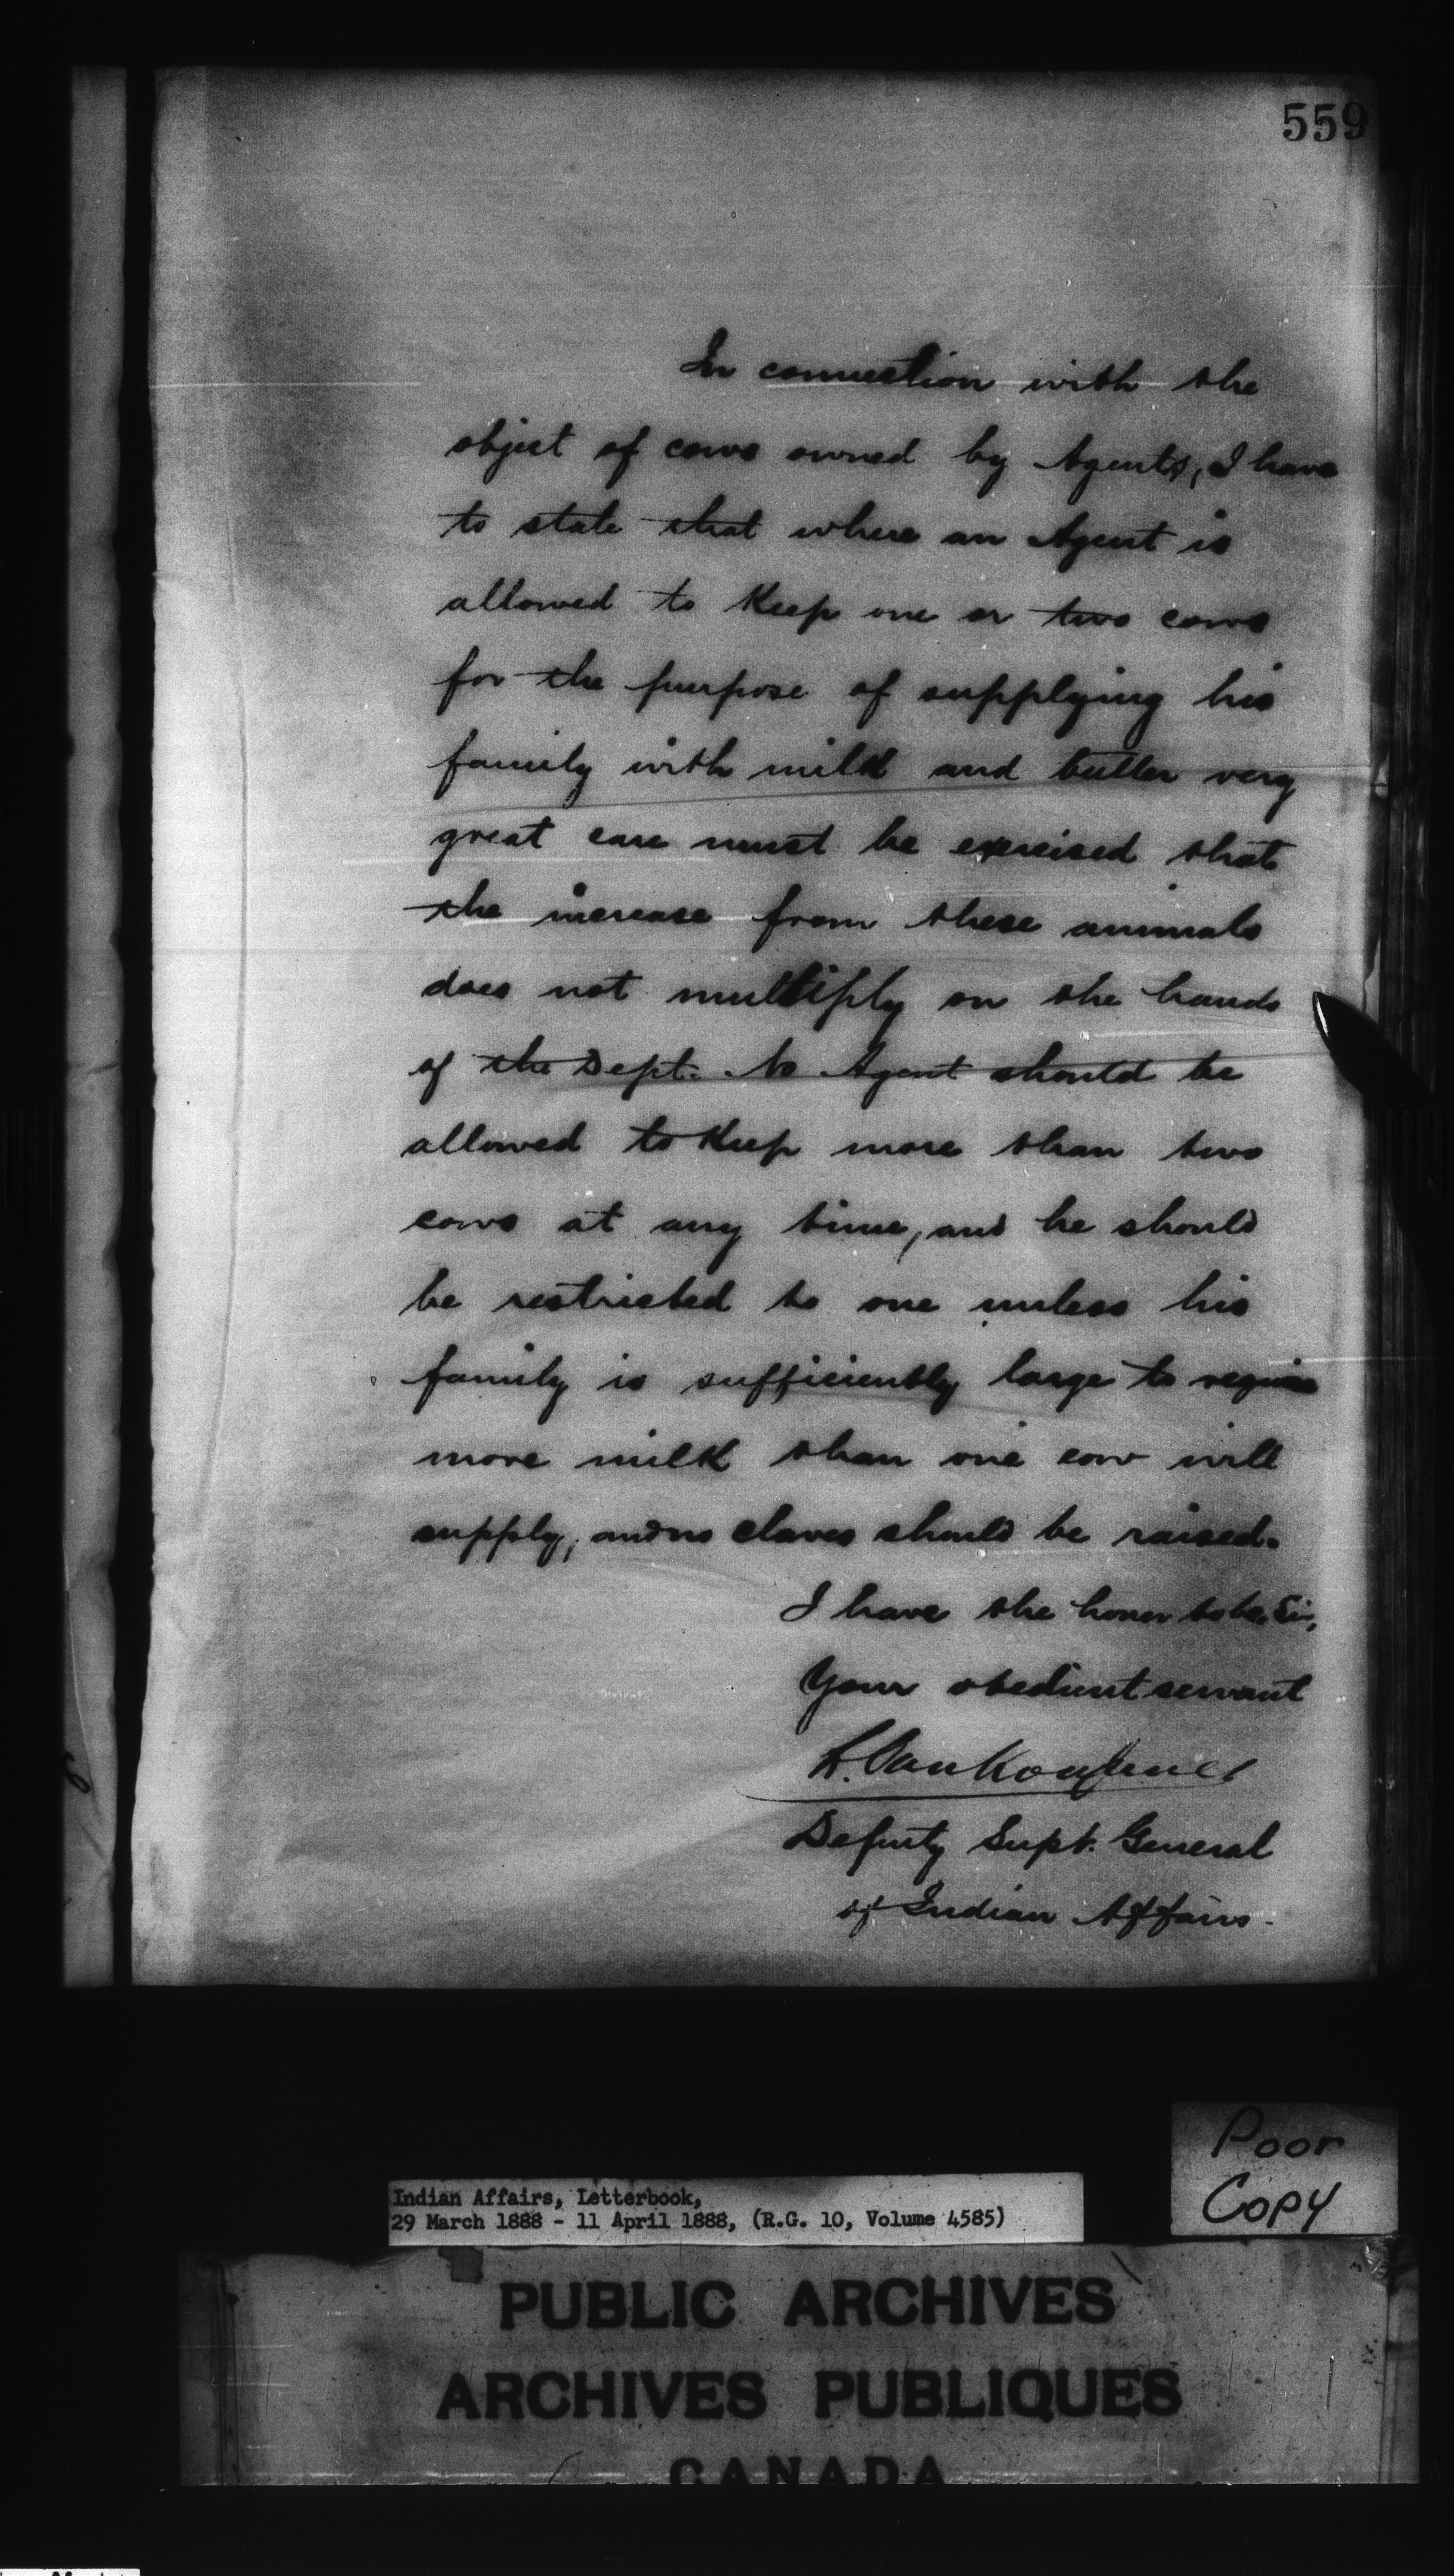 559
In connection with the
object of cows owned by Agents, I have
to state that where an Agent is
allowed to Keep one or two cows
for the purpose of supplying his
family with milk and butter very
great care must be exercised that
the increase from these animals
does not multiply on the hands
of the Dept. No Agent should be
allowed to Keep more than two
cows at any time, and he should
be restricted to one unless his
family is sufficiently large to require
more milk than one cow will
supply, and no claves should be raised.
I have the honor to be, Sir,
Your obedient servant
L. Vankoughnet
Deputy Supt. General
of Indian Affairs.
Poor
Copy
Indian Affairs, Letterbook,
29 March 1888 - 11 April 1888, (R.G. 10, Volume 4585)
PUBLIC ARCHIVES
ARCHIVES PUBLIQUES
CANADA